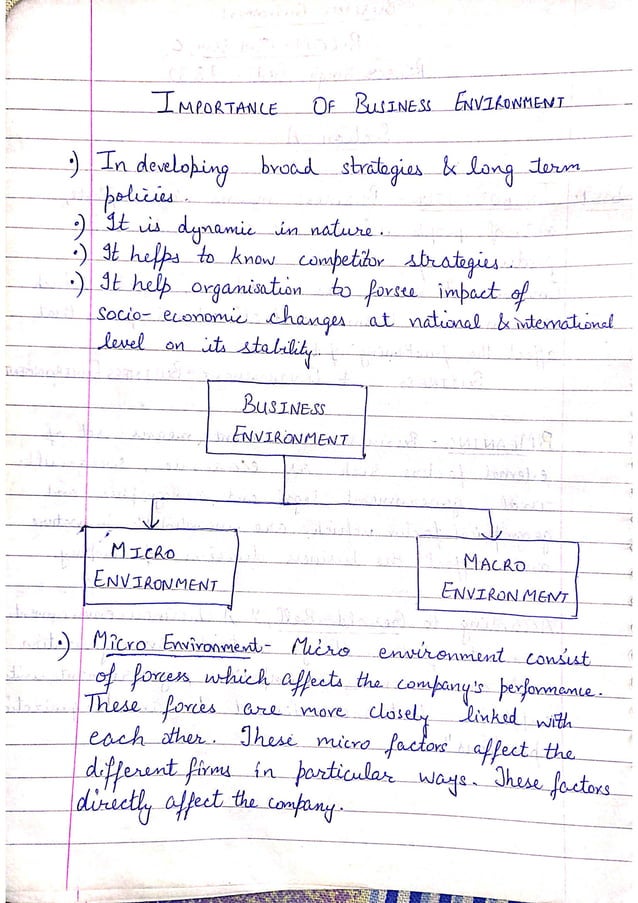 IMPORTANCE OF BUSINESS ENVIRONMENT
•) In developing broad strategies & long term
policies.
•) It is dynamic in nature.
•) It helps to know competitor strategies.
•) It help organisation to forsee impact of
socio-economic changes at national & international
level on its stability.
BUSINESS
ENVIRONMENT
MICRO
ENVIRONMENT
MACRO
ENVIRONMENT
•) Micro Environment - Micro environment consist
of forcess which affects the company's performance.
These forces are more closely linked with
each other. These micro factors affect the
different firms in particular ways. These factors
directly affect the company.